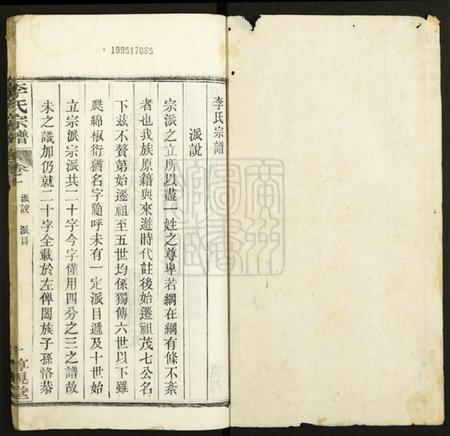 199517085
李氏宗譜
派說
宗派之立所以盡一姓之尊卑若綱在綱有條不紊
者也我族原籍與來遊時代註後始遷祖茂七公名
下茲不贅第始遷祖至五世均係獨傳六世以下雖
瓞綿椒衍猶名字隨呼未有一定派目遞及十世始
立宗派宗派共二十字今字僅用四分之三之譜故
未之議加仍就二十字全載於左俾闔族子孫恪恭
李氏宗譜
卷
派說 派目